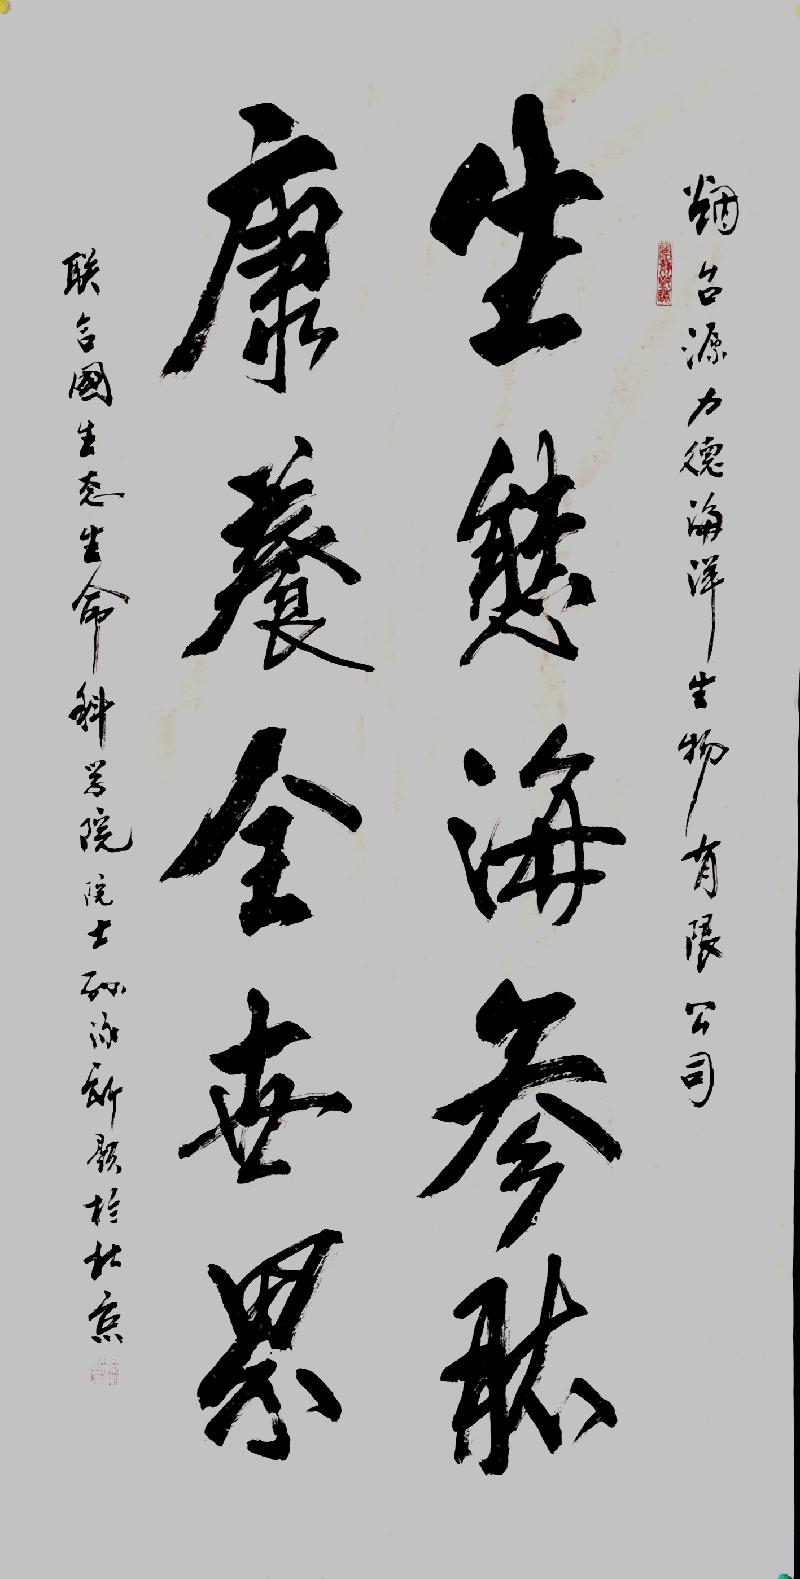 烟台源力德海洋生物有限公司
生態海参肽
康養全世界
联合國生态生命科学院院士孙泳新题於北京